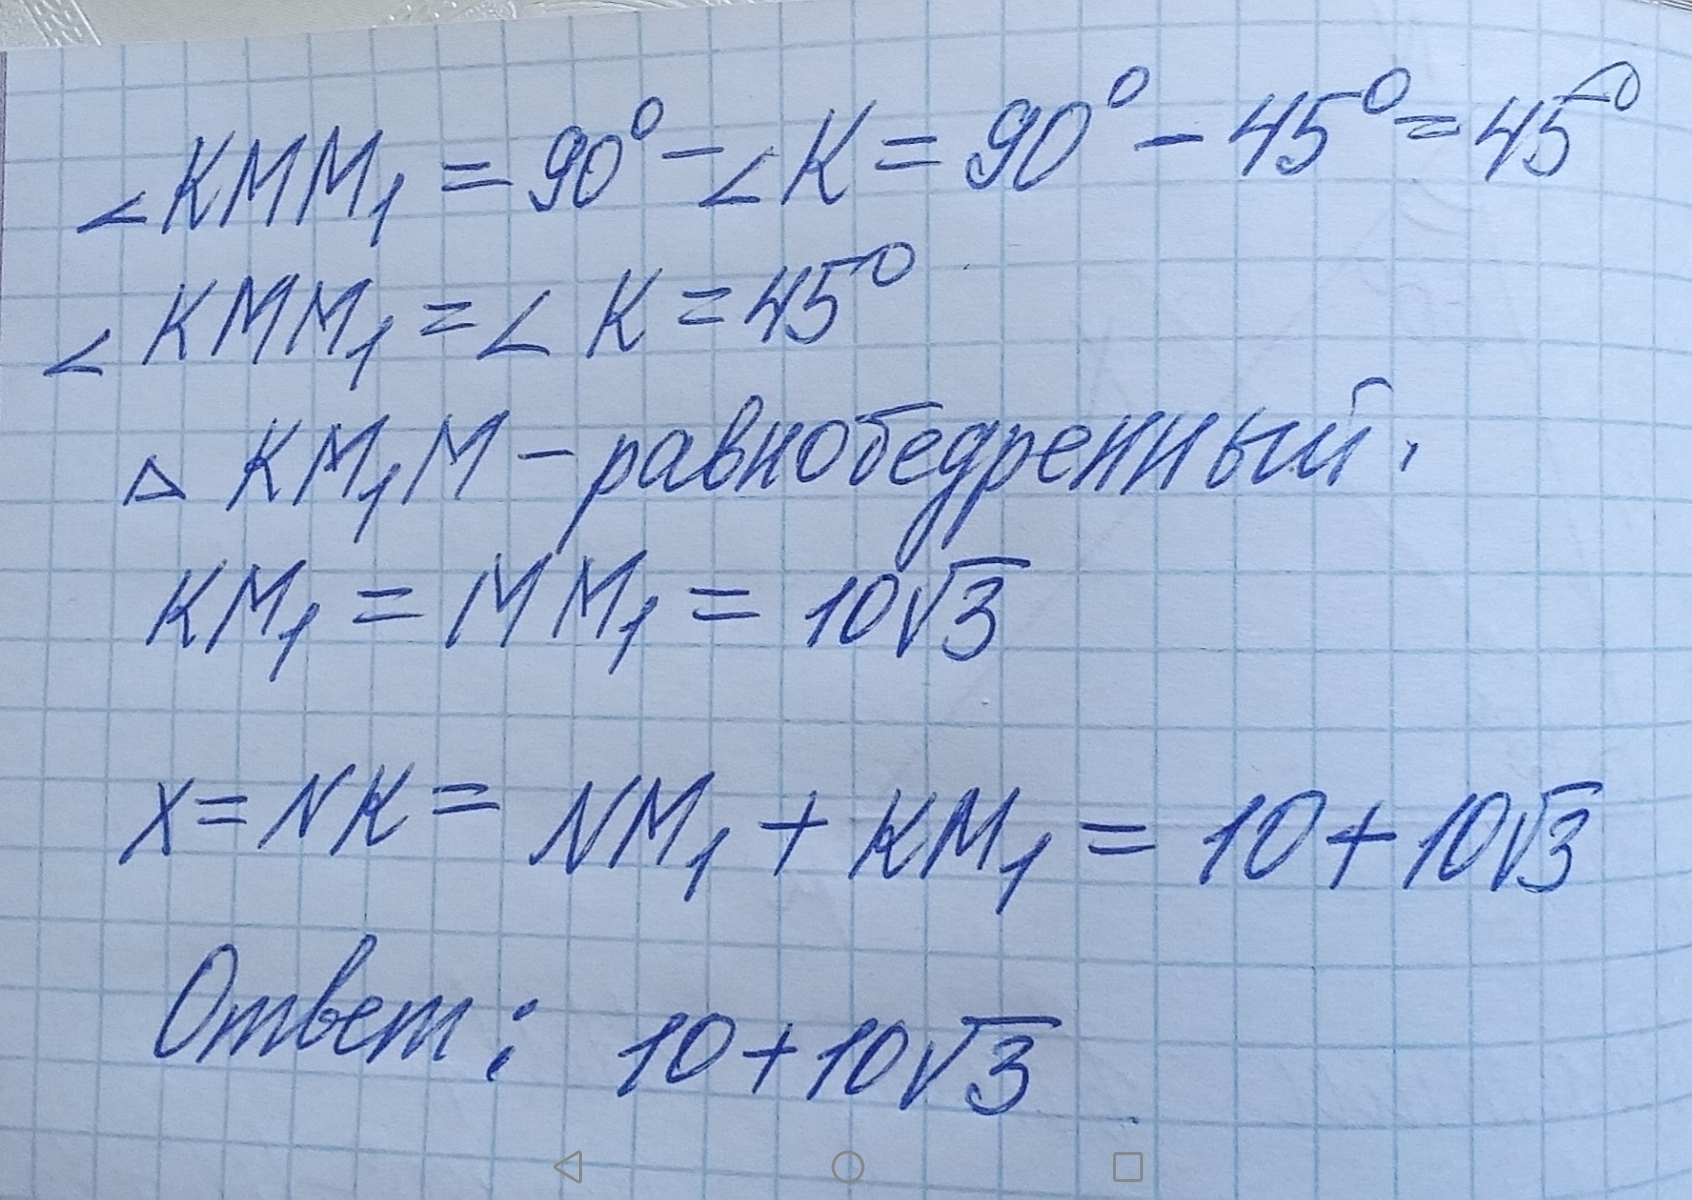 ∠KMM₁ = 90° - ∠K = 90° - 45° = 45°
∠KMM₁ = ∠K = 45°
△ KM₁M - равнобедренный.
KM₁ = MM₁ = 10√3
x = NK = NM₁ + KM₁ = 10 + 10√3
Ответ: 10 + 10√3